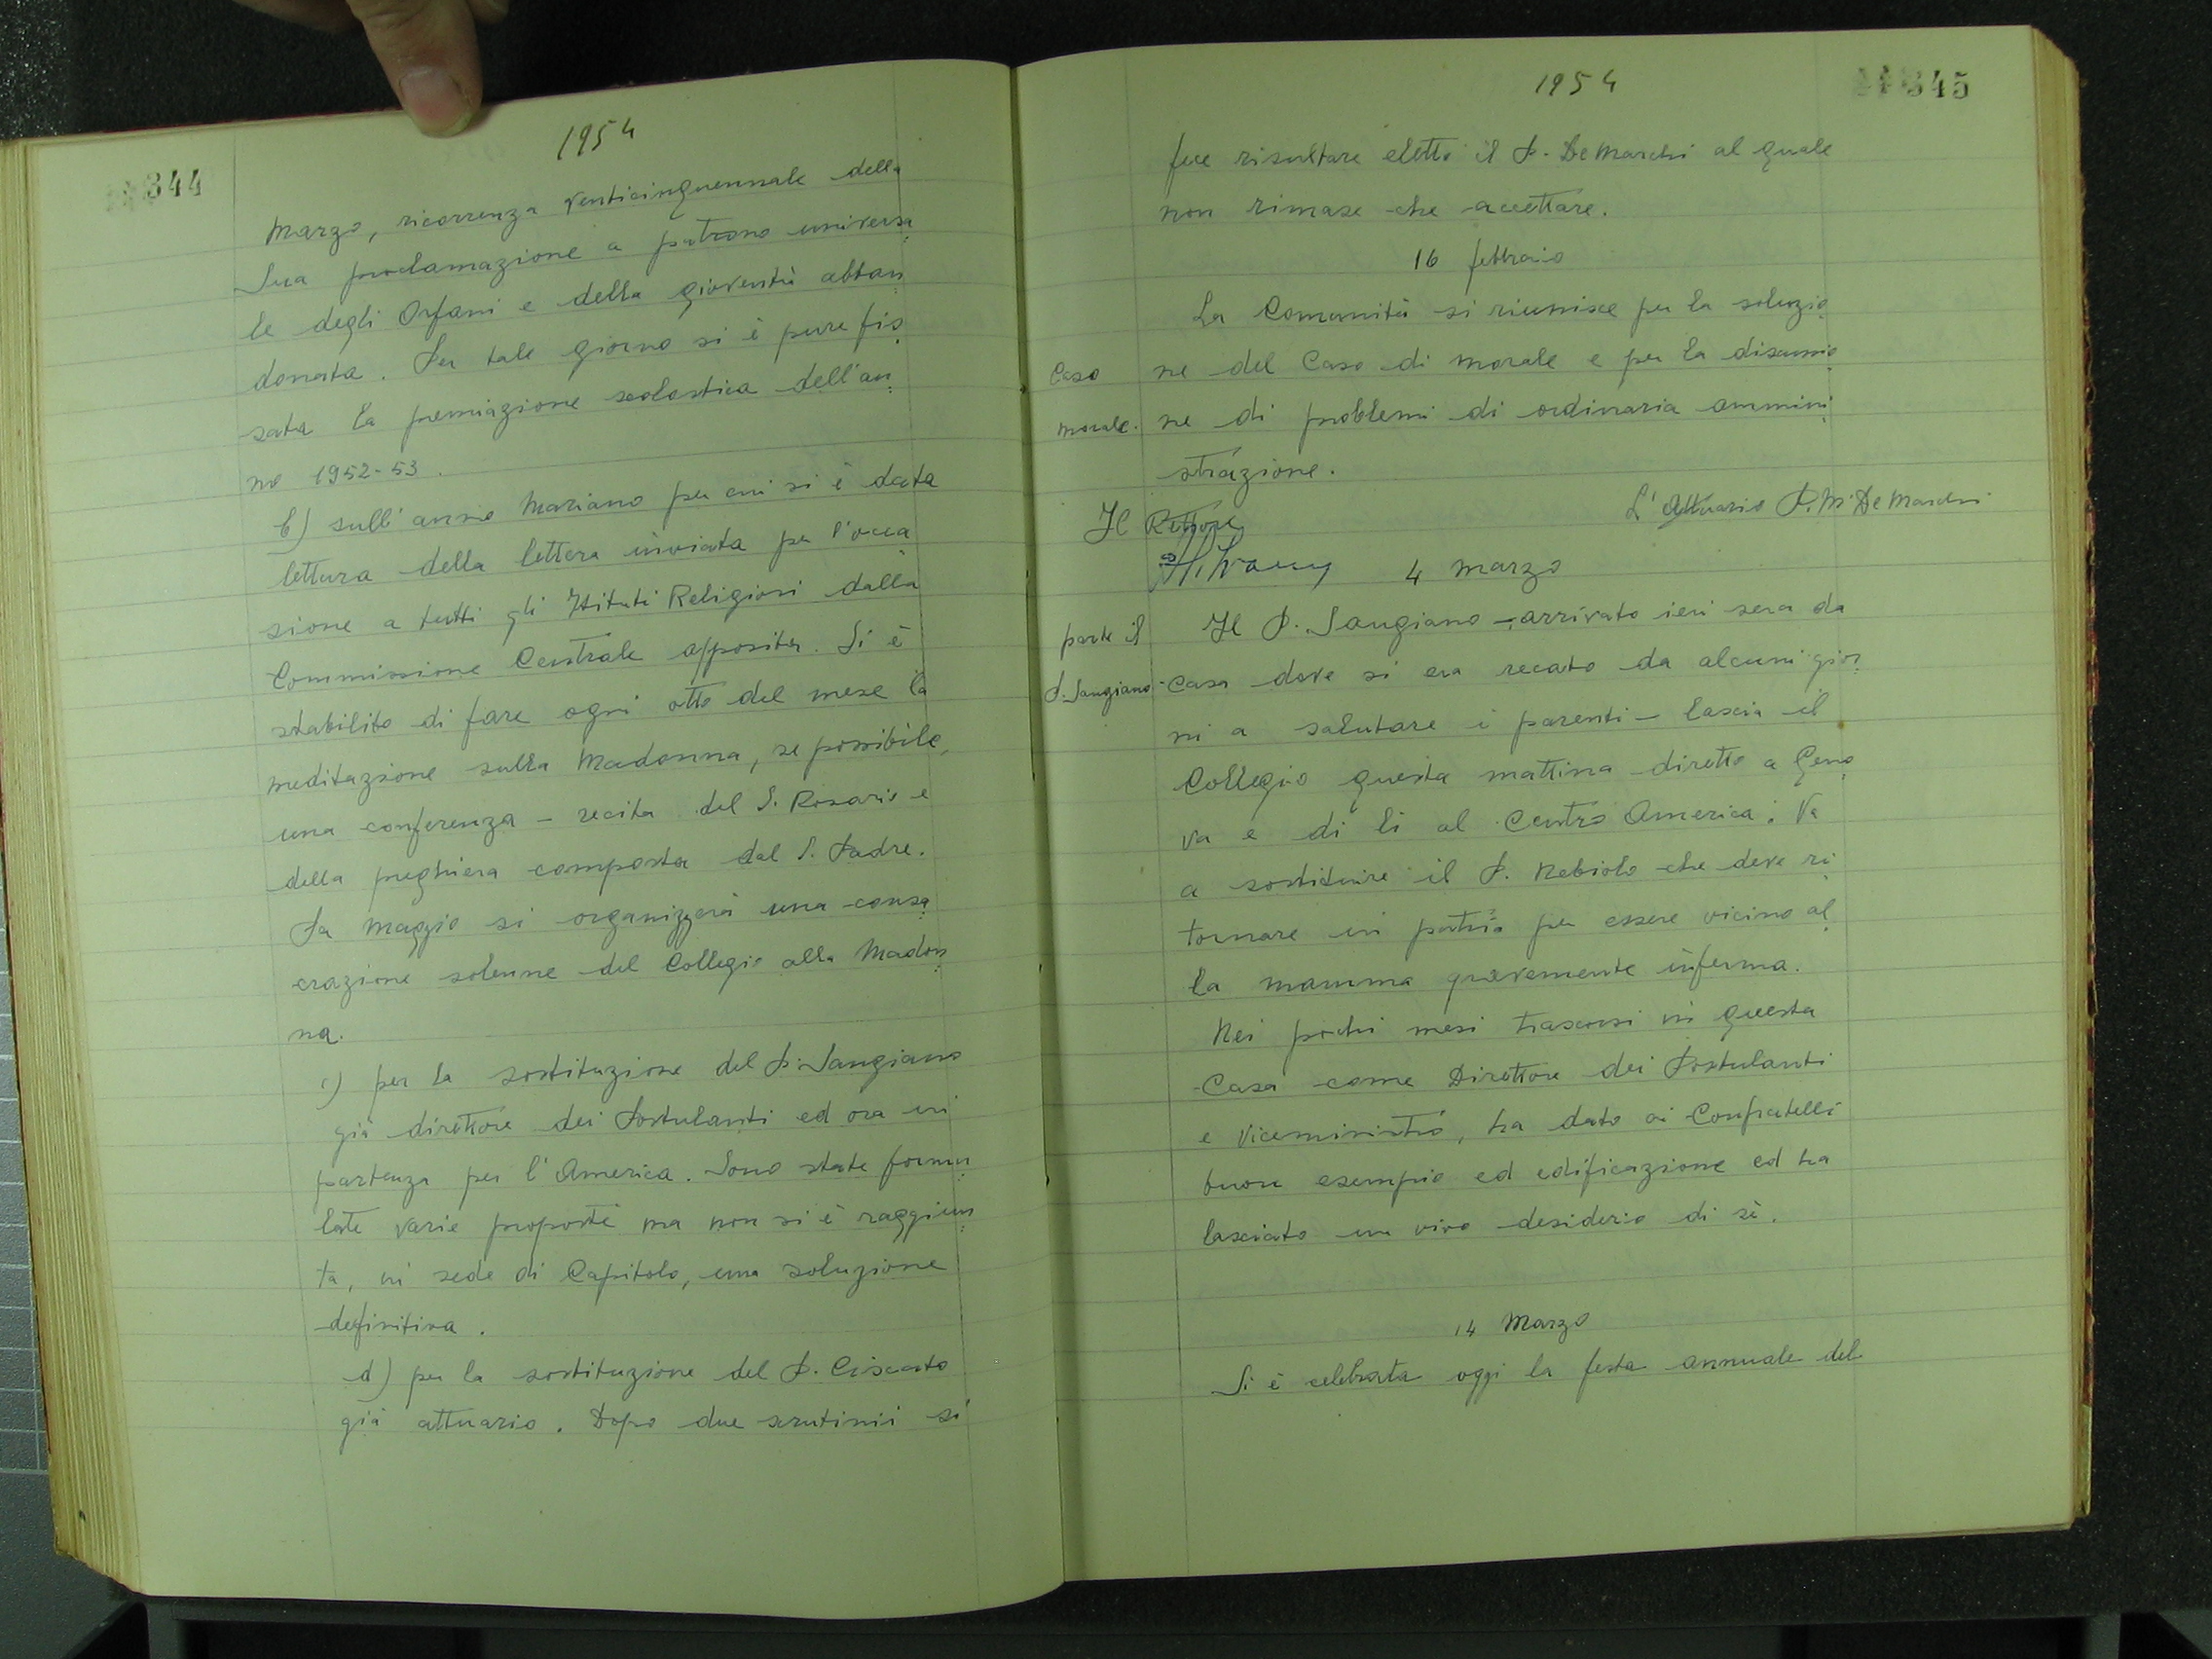 344
1954
Marzo, ricorrenza venticinquennale della
Sua proclamazione a patrono universa
le degli Orfani e della gioventù abban
donata. Per tale giorno si è pure fis
sata la premiazione scolastica dell'an
no 1952-53.
b) sull'anno Mariano per cui si è data
lettura della lettera inviata per l'occa
sione a tutti gli Istituti Religiosi dalla
Commissione Centrale apposita. Si è
stabilito di fare ogni otto del mese la
meditazione sulla Madonna, se possibile,
una conferenza - recita del S. Rosario e
della preghiera composta dal S. Padre.
In Maggio si organizzerà una consa
crazione solenne del Collegio alla Madon
na.
c) per la sostituzione del P. Sangiano
già direttore dei Postulanti ed ora in
partenza per l'America. Sono state formu
late varie proposte ma non si è raggiun
ta, in sede di Capitolo, una soluzione
definitiva.
d) per la sostituzione del P. Ciscato
già attuario. Dopo due scrutinii si
1954
345
fece risultare eletto il P. De Marchi al quale
non rimase che accettare.
16 febbraio
La Comunità si riunisce per la soluzio
Caso ne del Caso di morale e per la discussio
morale. ne di problemi di ordinaria ammini
strazione.
L'Attuario P. M. De Marchi
Il Rettore
4 Marzo
parte il Il P. Sangiano - arrivato ieri sera da
P. Sangiano - casa dove si era recato da alcuni gior
ni a salutare i parenti - lascia il
Collegio questa mattina diretto a Geno
va e di lì al Centro America. Va
a sostituire il P. Nebiolo che deve ri
tornare in patria per essere vicino al
la mamma gravemente inferma.
Nei pochi mesi trascorsi in questa
Casa come Direttore dei Postulanti
e Viceministro, ha dato ai Confratelli
buon esempio ed edificazione ed ha
lasciato un vivo desiderio di sè.
14 Marzo
Si è celebrata oggi la festa annuale del